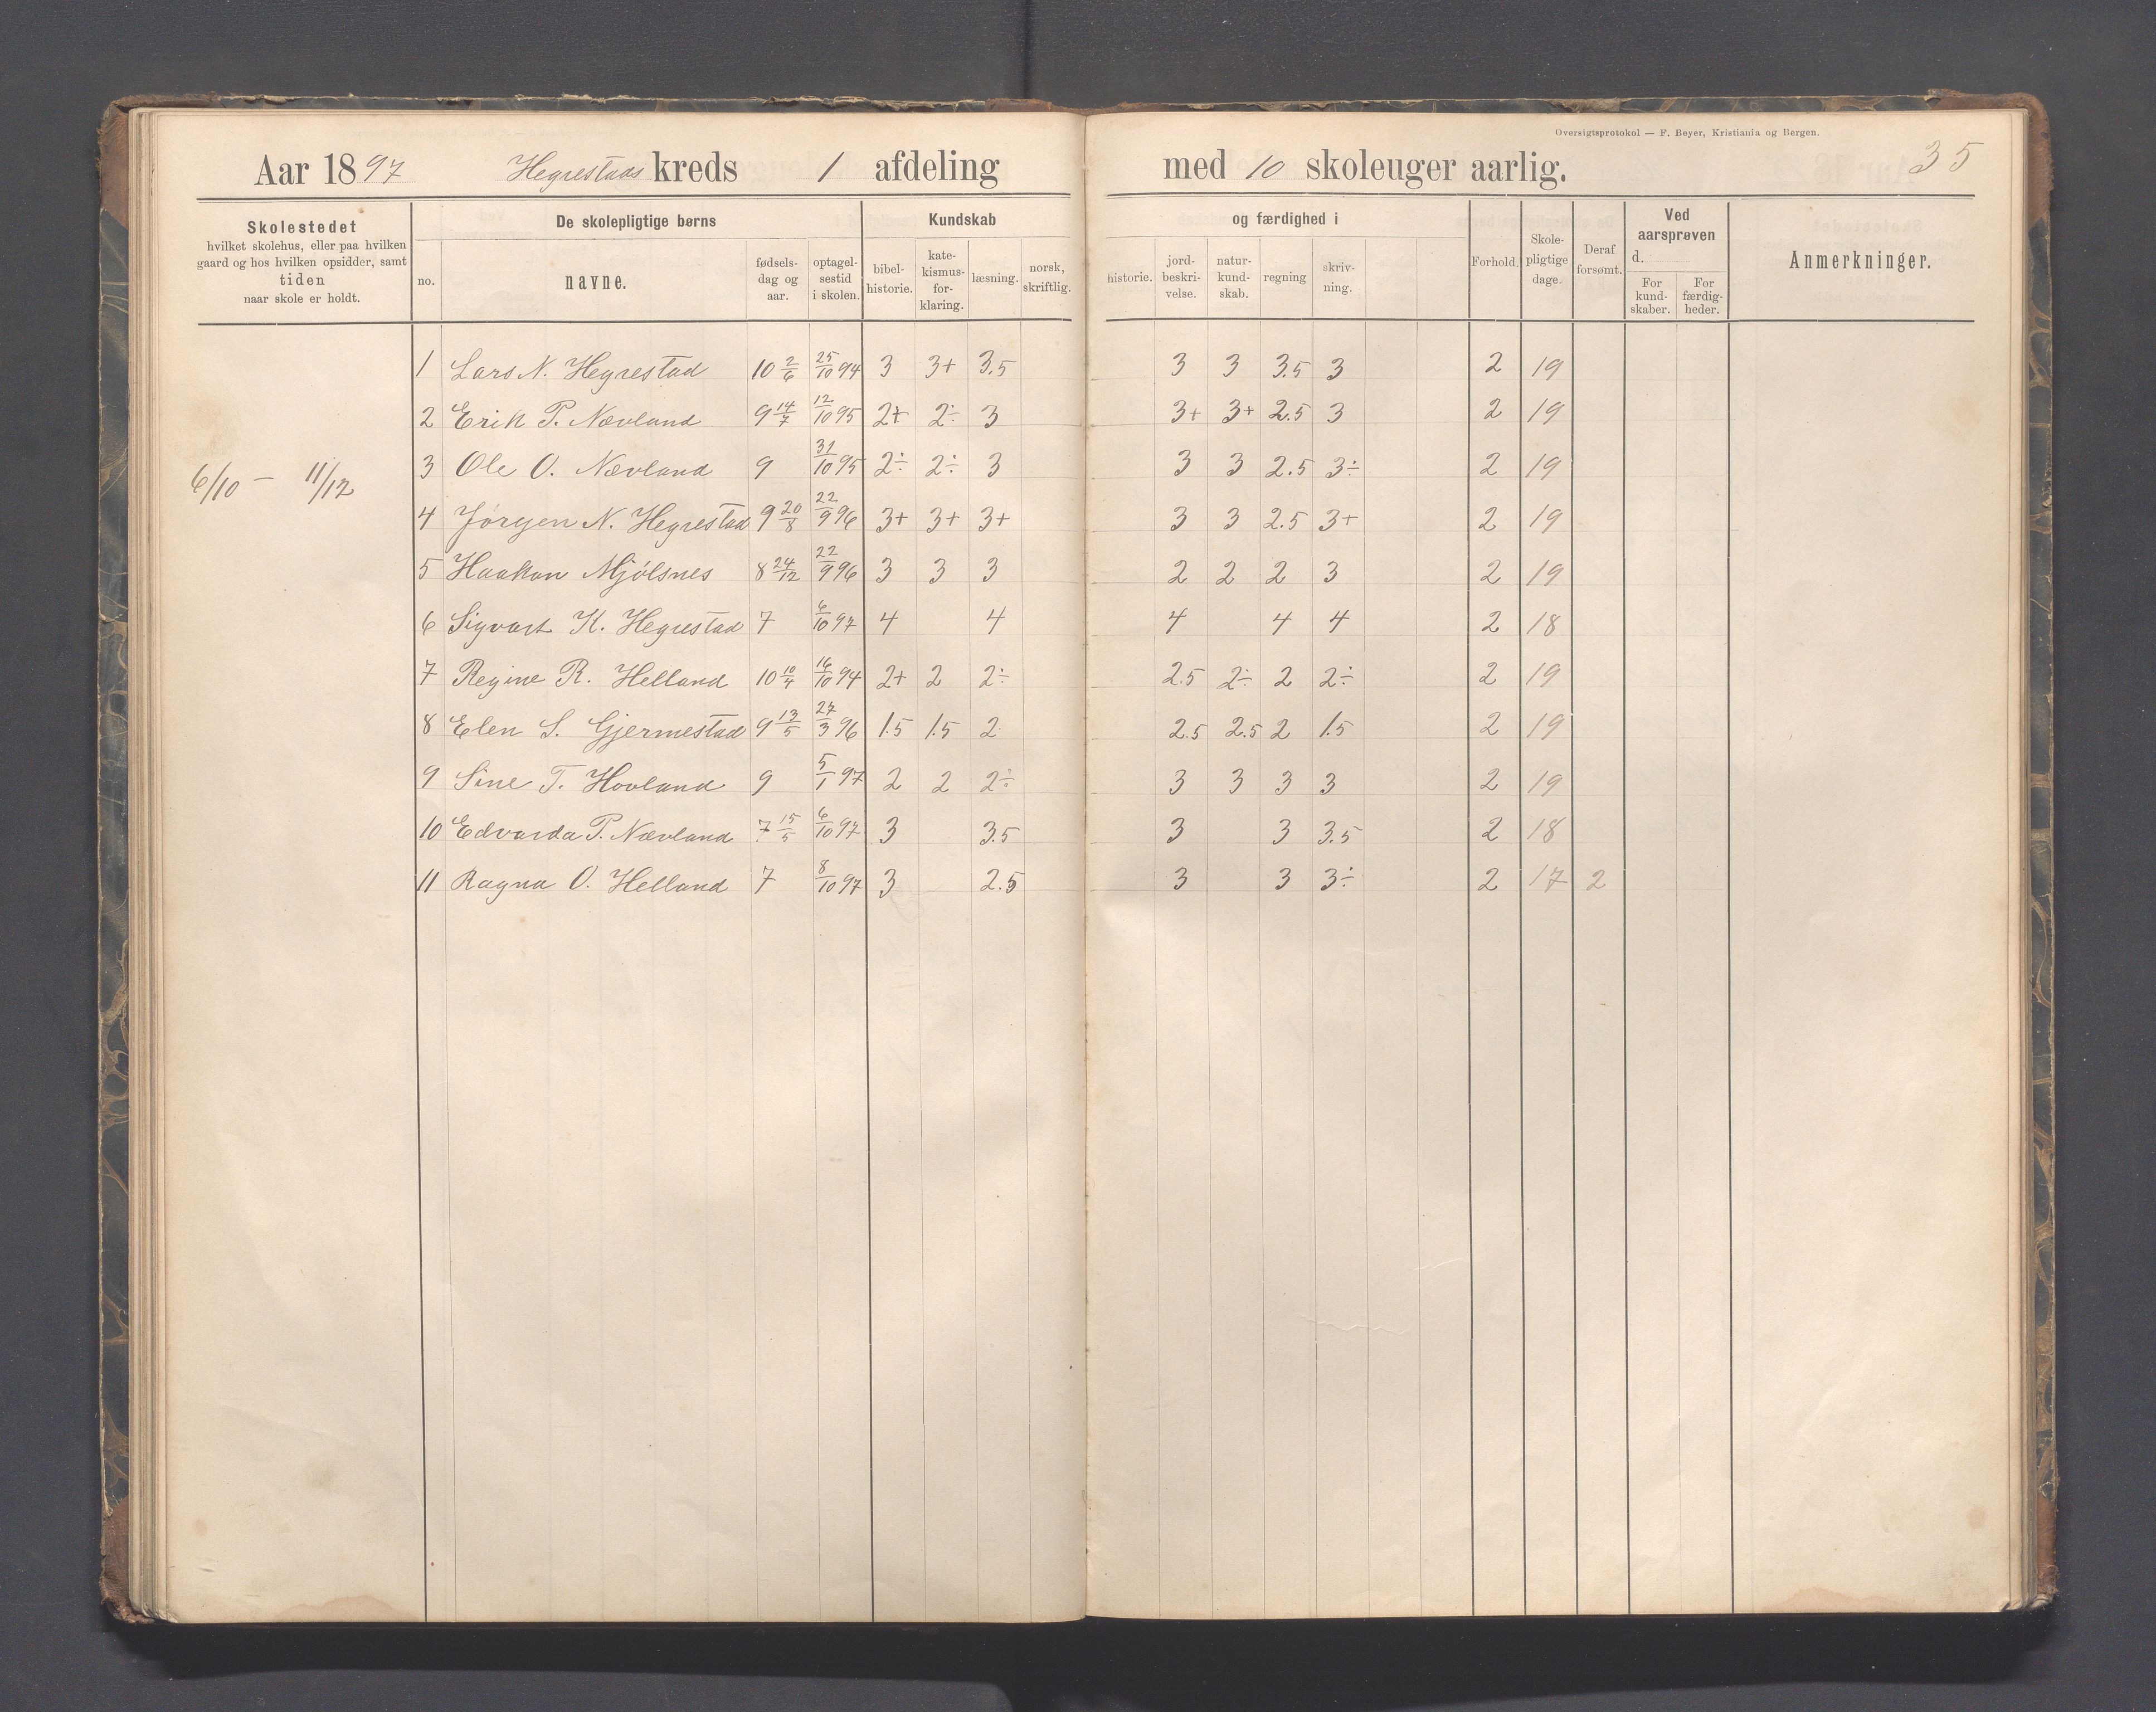 Oversigtsprotokol — F. Beyer, Kristiania og Bergen.
35
Aar 1897 Hegrestads kreds 1 afdeling med 10 skoleuger aarlig.
Skolestedet
hvilket skolehus, eller paa hvilken
gaard og hos hvilken opsidder, samt
tiden
naar skole er holdt.
De skolepligtige børns
no.
navne.
fødsels-
dag og
aar.
optagel-
sestid
i skolen.
Kundskab
bibel-
historie.
kate-
kismus-
for-
klaring.
læsning.
norsk,
skriftlig.
og færdighed i
historie.
jord-
beskri-
velse.
natur-
kund-
skab.
regning
skriv-
ning.
Forhold.
Skole-
pligtige
dage.
Deraf
forsømt.
Ved
aarsprøven
d.
For
kund-
skaber.
For
færdig-
heder.
Anmerkninger.
6/10 — 11/12
1 Lars N. Hegrestad 10 2/6 25/10 94 3 3+ 3.5 3 3 3.5 3 2 19
2 Erik P. Nævland 9 14/7 12/10 95 2+ 2÷ 3 3+ 3+ 2.5 3 2 19
3 Ole O. Nævland 9 31/10 95 2÷ 2÷ 3 3 3 2.5 3÷ 2 19
4 Jørgen N. Hegrestad 9 20/8 22/9 96 3+ 3+ 3+ 3 3 2.5 3+ 2 19
5 Haakon Mjølsnes 8 24/12 22/9 96 3 3 3 2 2 2 3 2 19
6 Sigvart K. Hegrestad 7 6/10 97 4 4 4 4 4 2 18
7 Regine R. Helland 10 10/4 16/10 94 2+ 2 2÷ 2.5 2÷ 2 2÷ 2 19
8 Elen S. Gjermestad 9 13/5 27/3 96 1.5 1.5 2 2.5 2.5 2 1.5 2 19
9 Sine T. Hovland 9 5/1 97 2 2 2÷ 3 3 3 3 2 19
10 Edvarda P. Nævland 7 15/5 6/10 97 3 3.5 3 3 3.5 2 18
11 Ragna O. Helland 7 8/10 97 3 2.5 3 3 3÷ 2 17 2